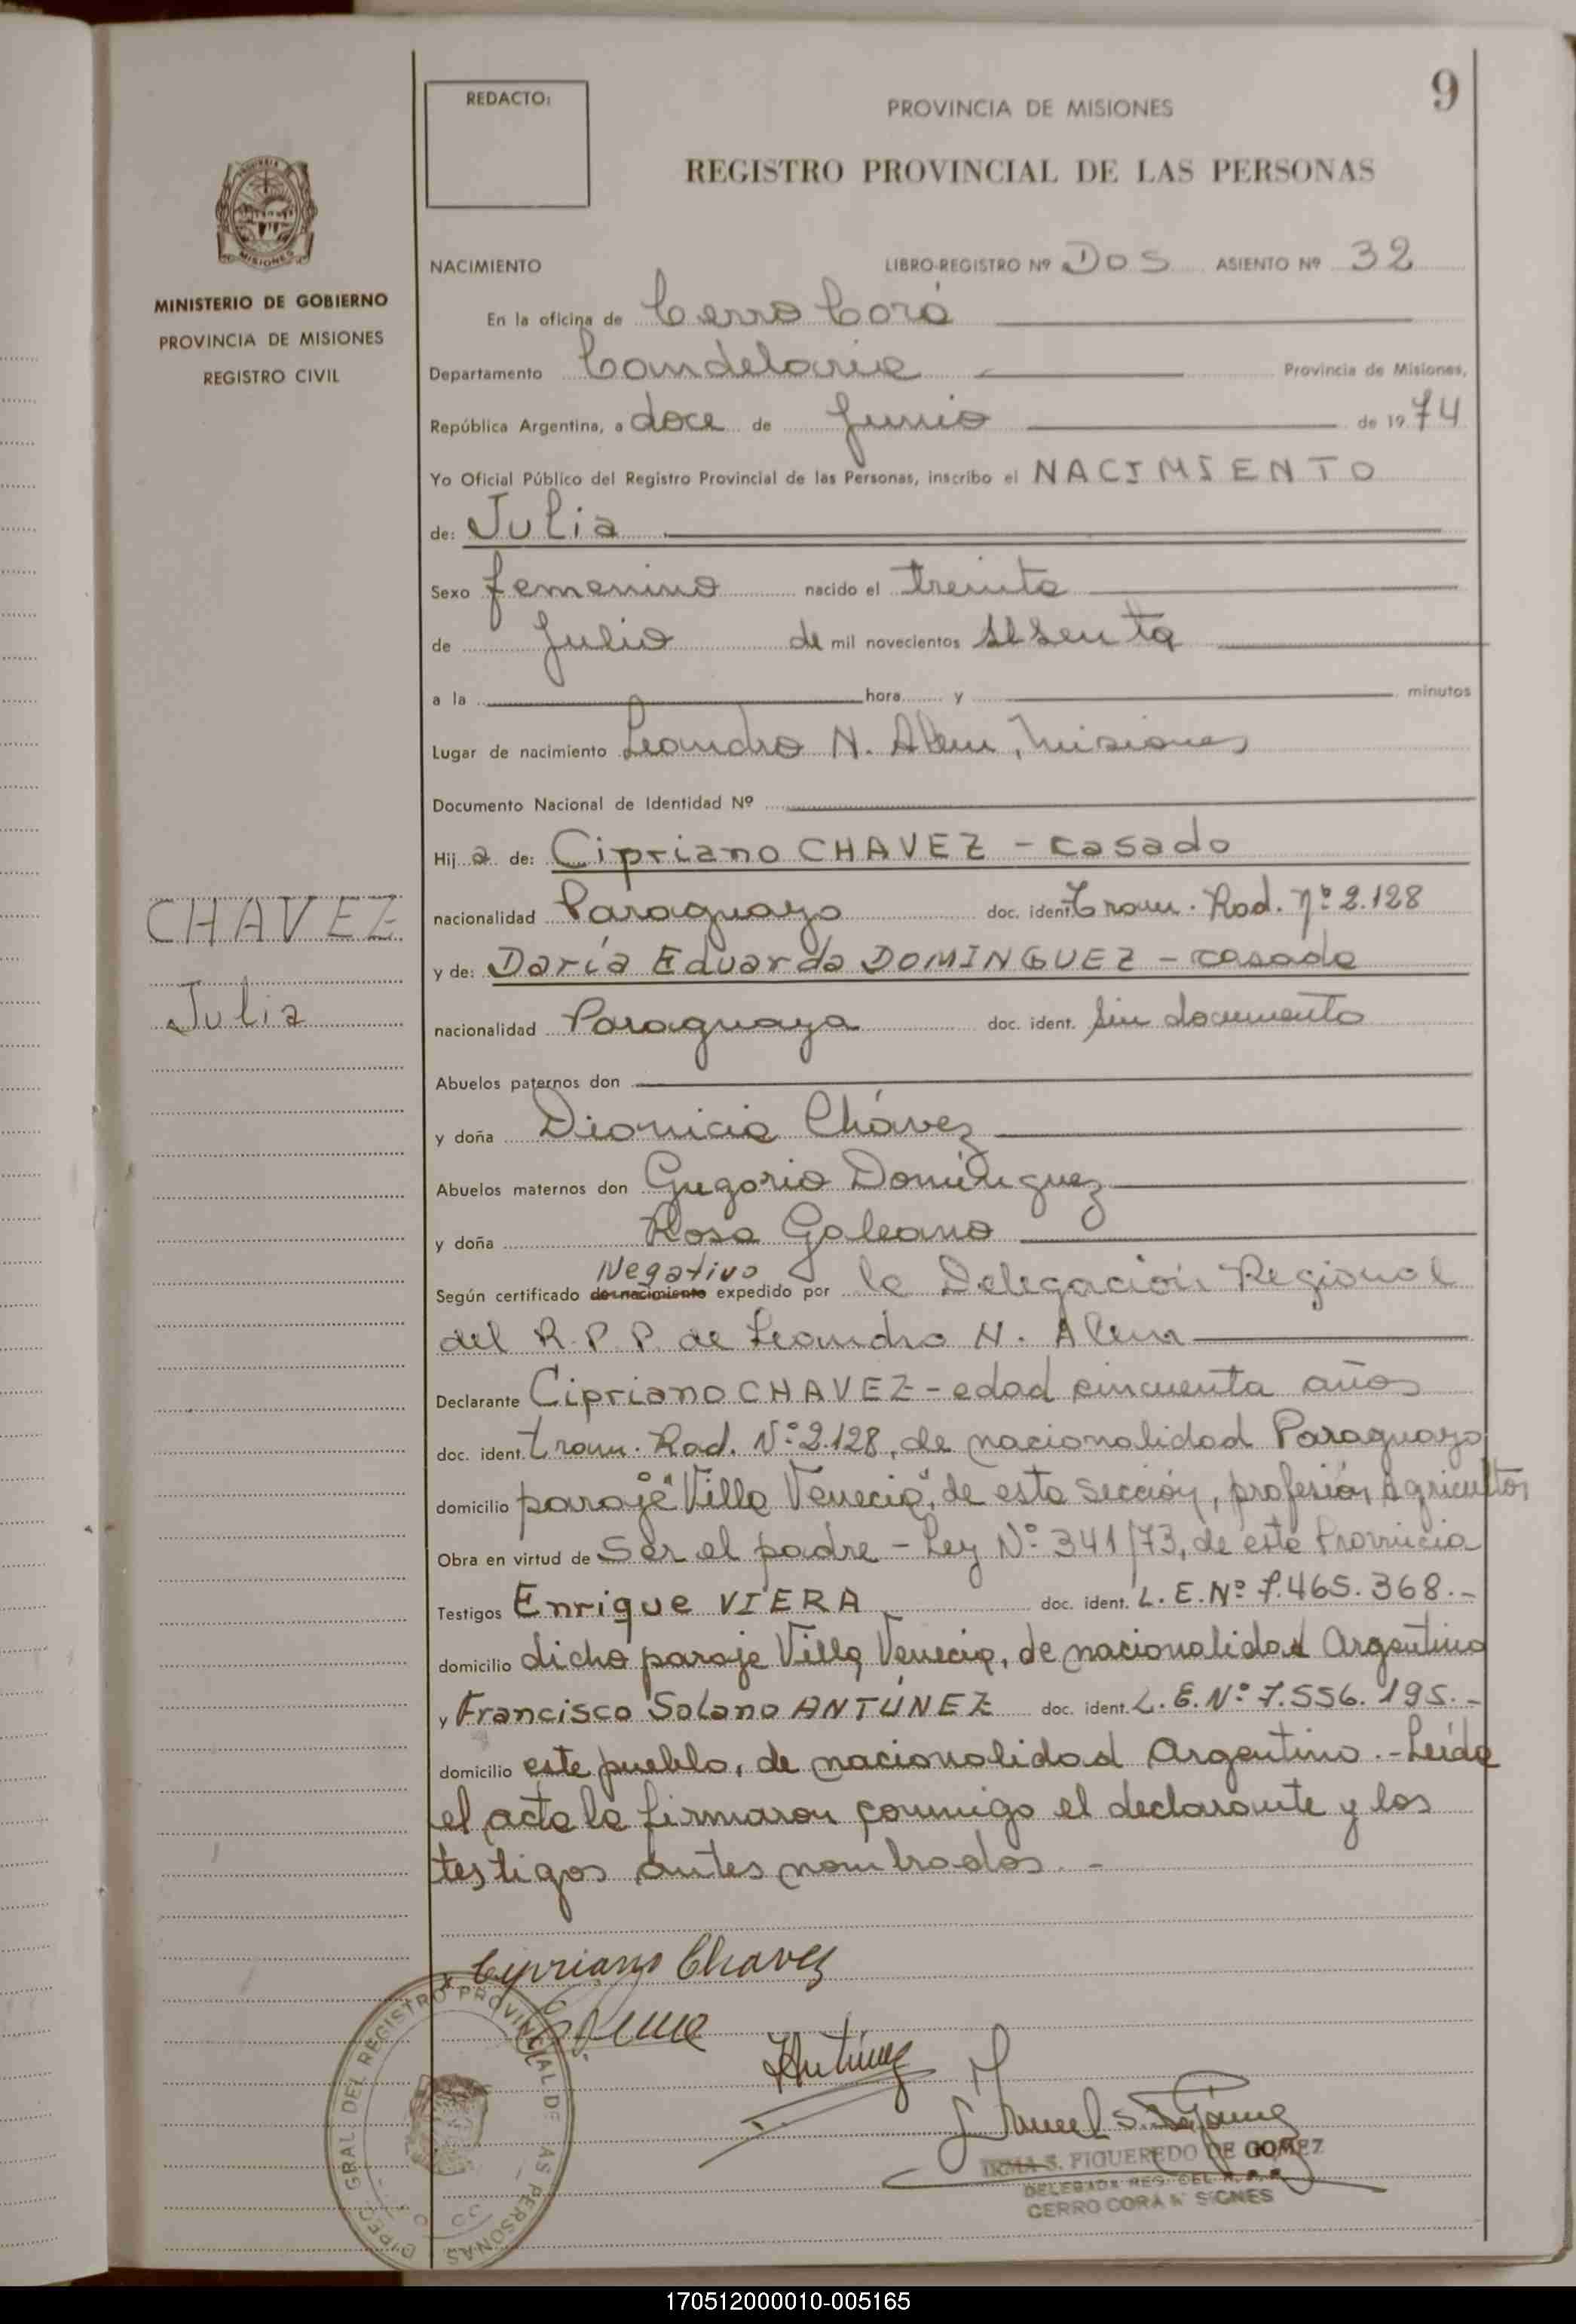 REDACTO:
PROVINCIA DE MISIONES
9
REGISTRO PROVINCIAL DE LAS PERSONAS
MISIONES
MINISTERIO DE GOBIERNO
PROVINCIA DE MISIONES
REGISTRO CIVIL
NACIMIENTO LIBRO-REGISTRO Nº Dos ASIENTO Nº 32
En la oficina de Cerro Corá
Departamento Candelaria Provincia de Misiones,
República Argentina, a doce de Junio de 1974
Yo Oficial Público del Registro Provincial de las Personas, inscribo el NACIMIENTO
de: Julia
Sexo femenino nacido el treinta
de Julio de mil novecientos sesenta
a la hora y minutos
Lugar de nacimiento Leandro N. Alem, Misiones
Documento Nacional de Identidad Nº
Hija de: Cipriano CHAVEZ - casado
nacionalidad Paraguayo doc. ident. Tram. Rad. Nº 2.128
CHAVEZ
y de: Daría Eduarda DOMINGUEZ - casada
Julia
nacionalidad Paraguaya doc. ident. Sin documento
Abuelos paternos don
y doña Dionicia Chávez
Abuelos maternos don Gregorio Domínguez
y doña Rosa Galeano
Negativo
Según certificado de nacimiento expedido por la Delegación Regional
del R.P.P. de Leandro N. Alem
Declarante Cipriano CHAVEZ - edad cincuenta años
doc. ident. tram. Rad. Nº 2.128, de nacionalidad Paraguayo
domicilio paraje "Villa Venecia", de esta sección, profesión Agricultor
Obra en virtud de Ser el padre - Ley Nº 341/73, de esta Provincia
Testigos Enrique VIERA doc. ident. L.E. Nº 7.465.368.-
domicilio dicho paraje Villa Venecia, de nacionalidad Argentino
y Francisco Solano ANTÚNEZ doc. ident. L.E. Nº 7.556.195.-
domicilio este pueblo, de nacionalidad Argentino.- Leída
el acta la firmaron conmigo el declarante y los
testigos antes nombrados.-
x Cipriano Chavez
Antúnez
IRMA S. FIGUEREDO DE GOMEZ
DELEGADA REG. DEL R.P.P.
CERRO CORA MISIONES
GRAL. DEL REGISTRO PROVINCIAL DE LAS PERSONAS
170512000010-005165